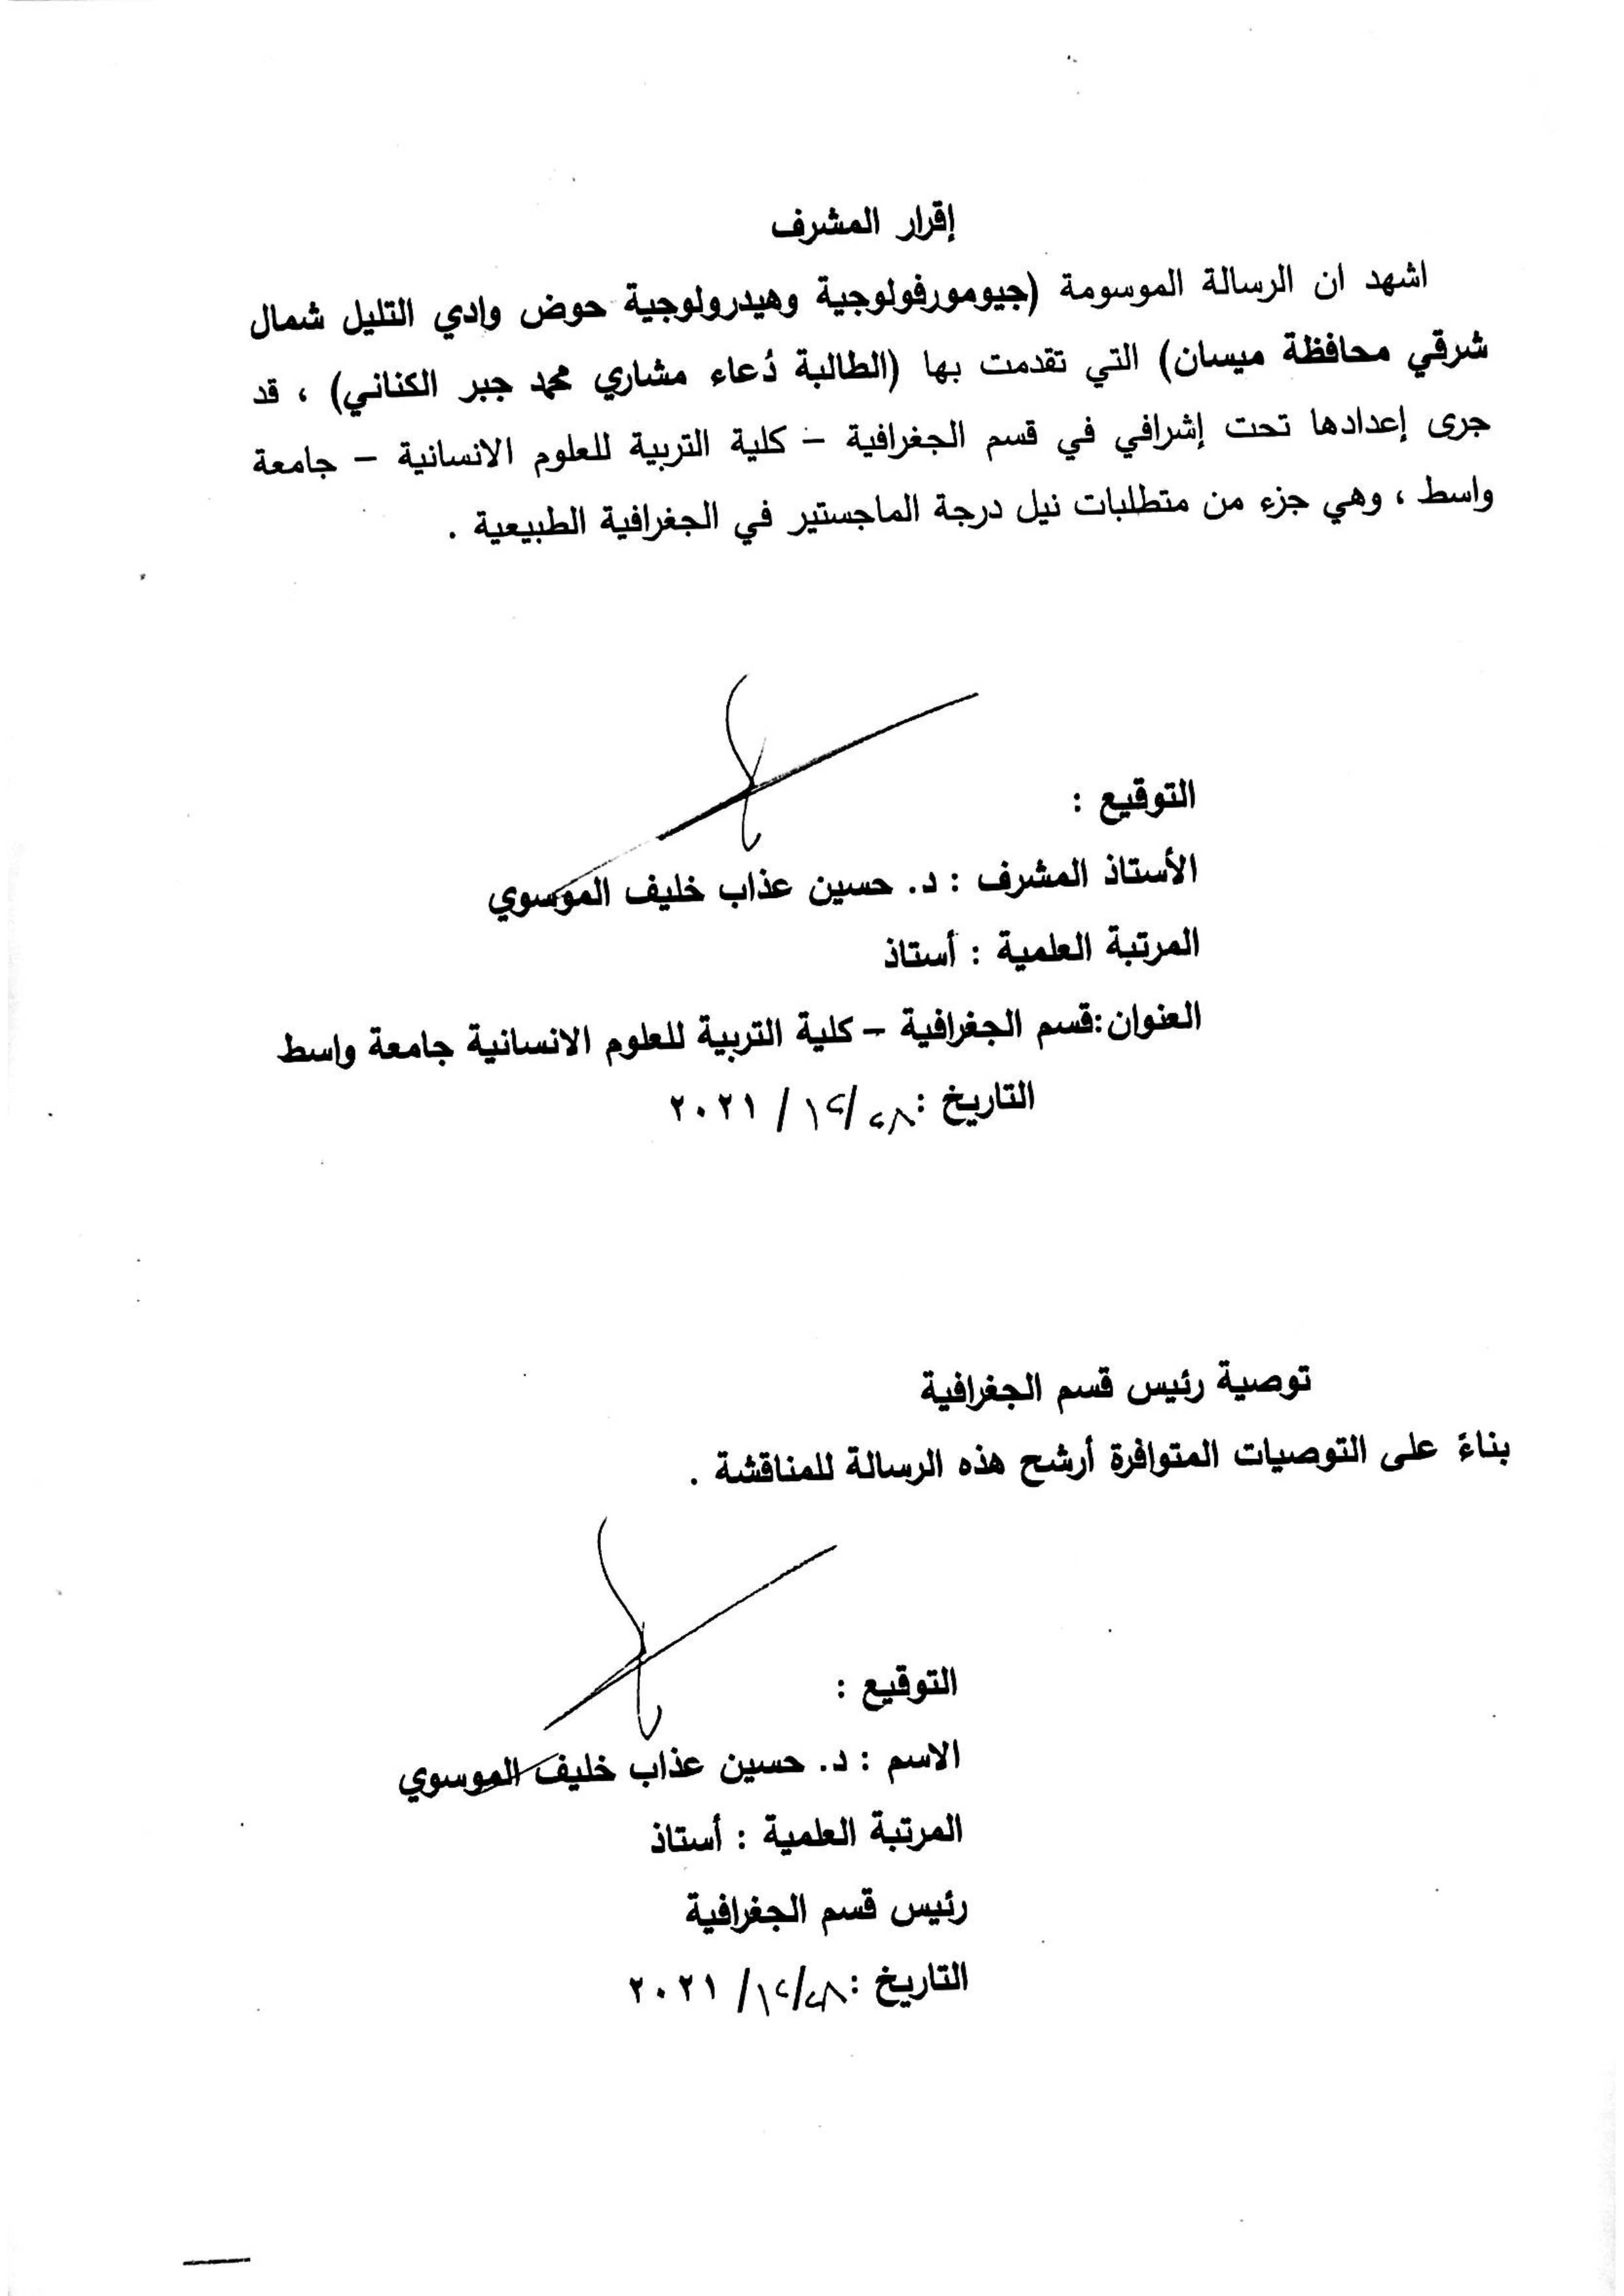 إقرار المشرف
اشهد ان الرسالة الموسومة (جيومورفولوجية وهيدرولوجية حوض وادي التليل شمال
شرقي محافظة ميسان) التي تقدمت بها (الطالبة دُعاء مشاري محمد جبر الكناني) ، قد
جرى إعدادها تحت إشرافي في قسم الجغرافية – كلية التربية للعلوم الانسانية – جامعة
واسط ، وهي جزء من متطلبات نيل درجة الماجستير في الجغرافية الطبيعية .
التوقيع :
الأستاذ المشرف : د. حسين عذاب خليف الموسوي
المرتبة العلمية : أستاذ
العنوان:قسم الجغرافية – كلية التربية للعلوم الانسانية جامعة واسط
التاريخ :٢٨/ ١٢/ ٢٠٢١
توصية رئيس قسم الجغرافية
بناءً على التوصيات المتوافرة أرشح هذه الرسالة للمناقشة .
التوقيع :
الاسم : د. حسين عذاب خليف الموسوي
المرتبة العلمية : أستاذ
رئيس قسم الجغرافية
التاريخ :٢٨/ ١٢/ ٢٠٢١